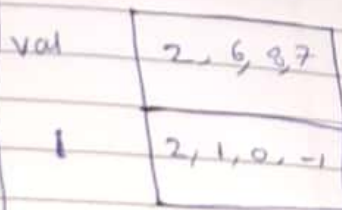 val 2, 6, 8, 7
1 2, 1, 0, -1